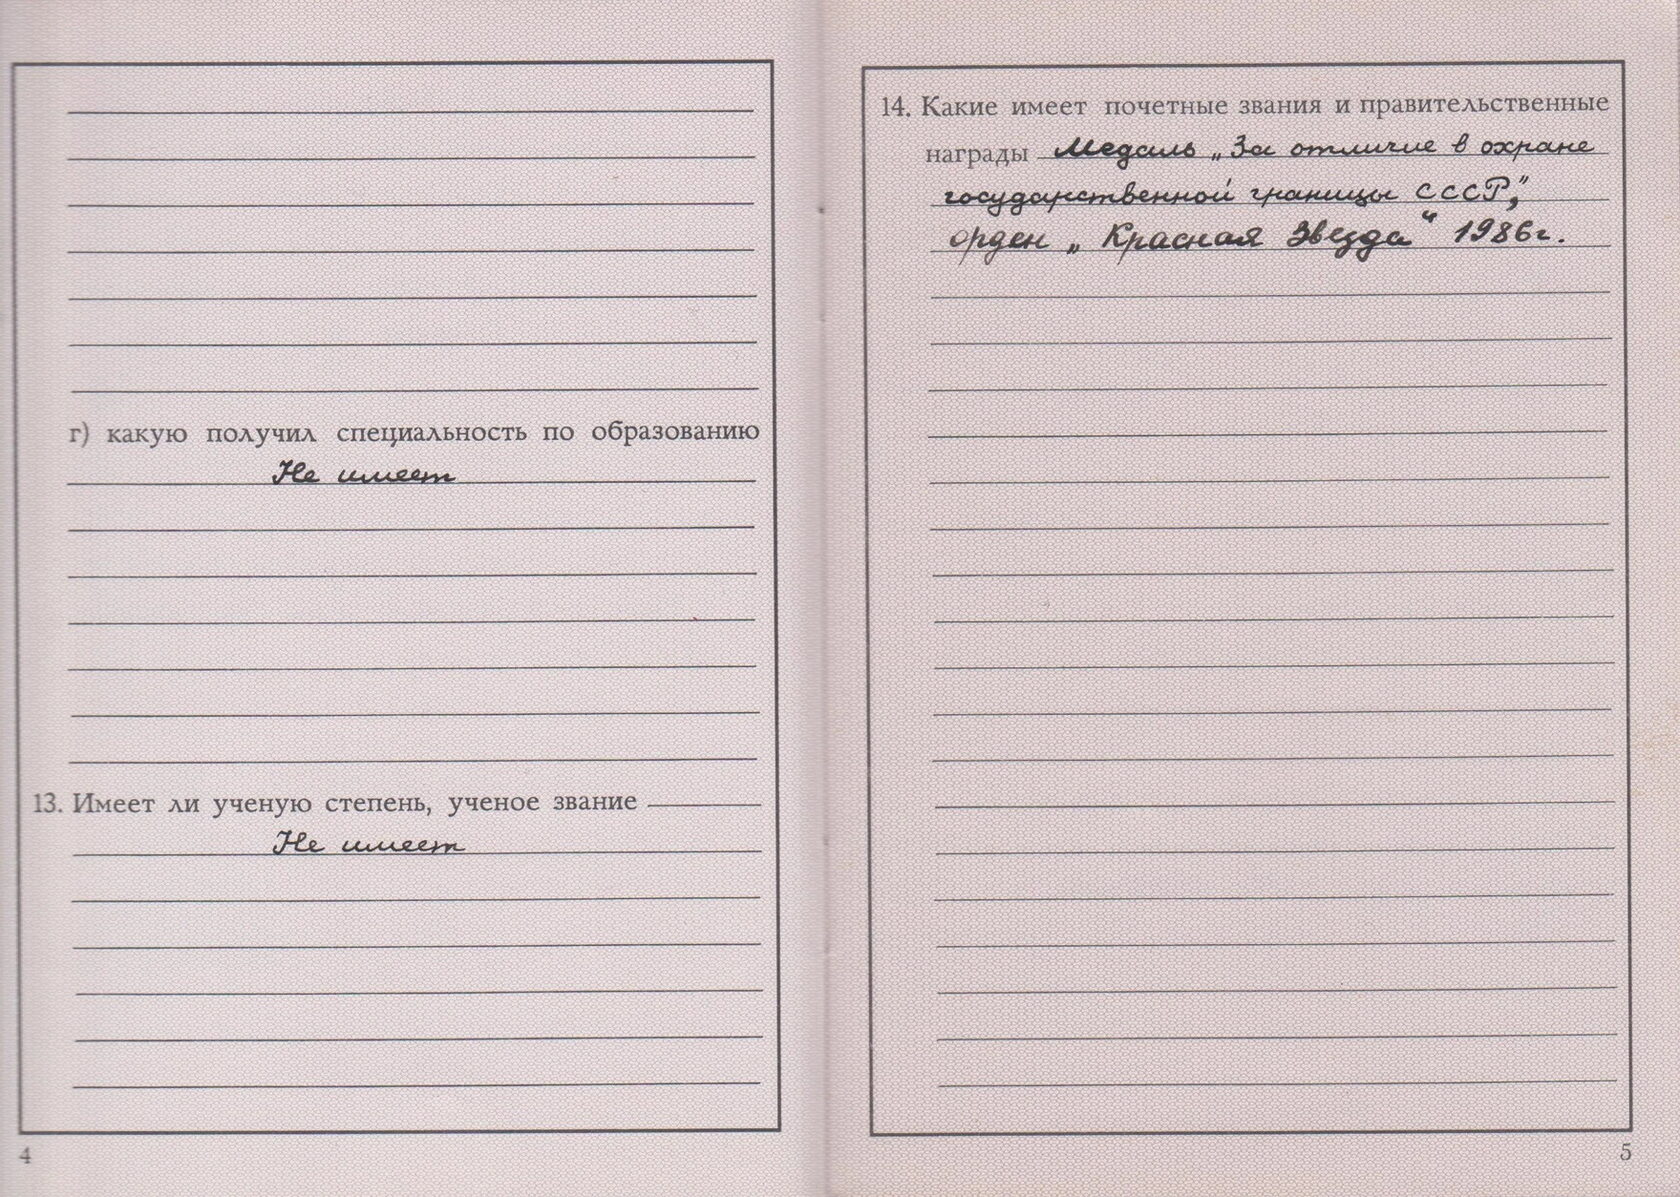 г) какую получил специальность по образованию
Не имеет
13. Имеет ли ученую степень, ученое звание
Не имеет
4
14. Какие имеет почетные звания и правительственные
награды Медаль „За отличие в охране
государственной границы СССР”,
орден „Красная Звезда“ 1986г.
5